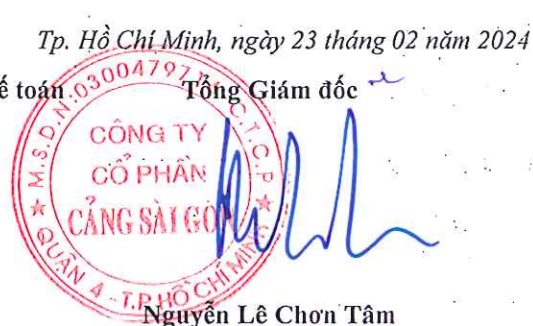 Tp. Hồ Chí Minh, ngày 23 tháng 02 năm 2024
ế toán Tổng Giám đốc
M.S.D.N:03004797 C.T.C.P
CÔNG TY
CỔ PHẦN
CẢNG SÀI GÒN
QUẬN 4 - T.P HỒ CHÍ MINH
Nguyễn Lê Chơn Tâm